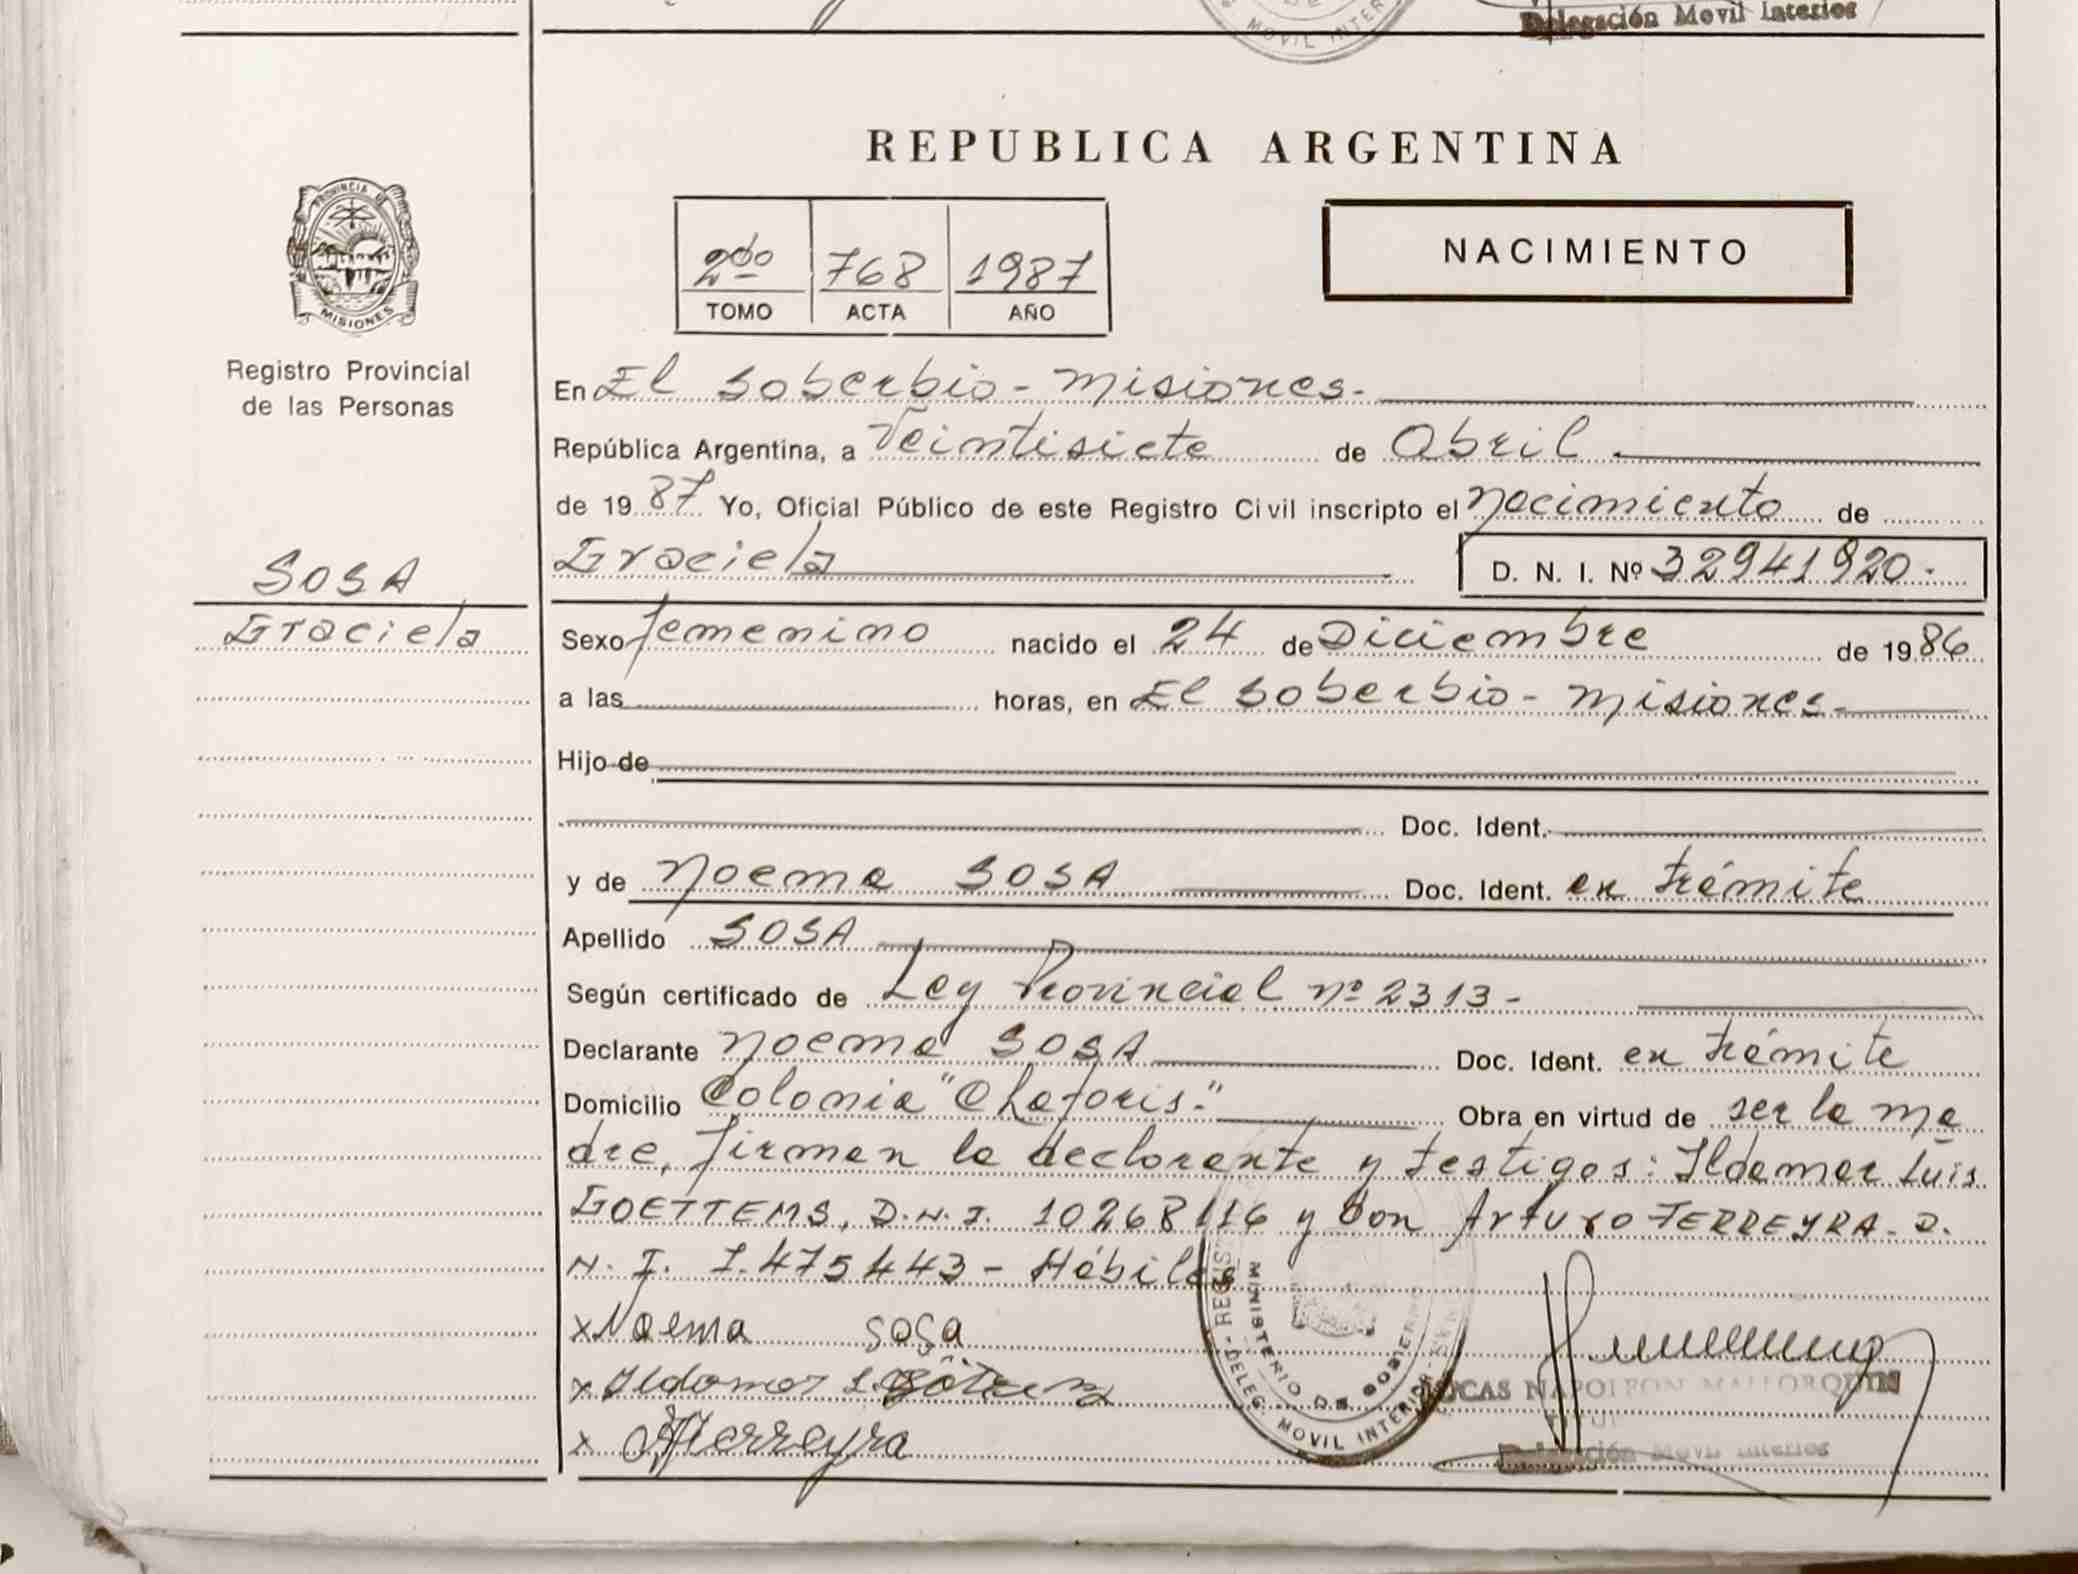 MOVIL INTER
Delegación Movil Interior
REPUBLICA ARGENTINA
PROVINCIA DE
MISIONES
2do 768 1987
TOMO ACTA AÑO
NACIMIENTO
Registro Provincial
de las Personas
En El Soberbio - Misiones.
República Argentina, a Veintisiete de Abril
de 1987 Yo, Oficial Público de este Registro Civil inscripto el Nacimiento de
Graciela D. N. I. Nº 32941920.
SOSA
Graciela
Sexo femenino nacido el 24 de Diciembre de 1986
a las horas, en El Soberbio - Misiones.
Hijo de
Doc. Ident.
y de Noema SOSA Doc. Ident. en trámite
Apellido SOSA
Según certificado de Ley Provincial nº 2313-
Declarante Noema SOSA Doc. Ident. en trámite
Domicilio Colonia "Chafaris." Obra en virtud de ser la ma
dre, firman la declarante y testigos: Ildemar Luis
GOETTEMS, D.N.I. 10268116 y Don Arturo FERREYRA. D.
N. I. 7.475443 - Hábiles
x Noema sosa
x Ildomar L.
x AFerreyra
MINISTERIO DE GOBIERNO
DELEG. MOVIL INTERIOR
LUCAS NAPOLEON MALLORQUIN
Delegación Movil Interior